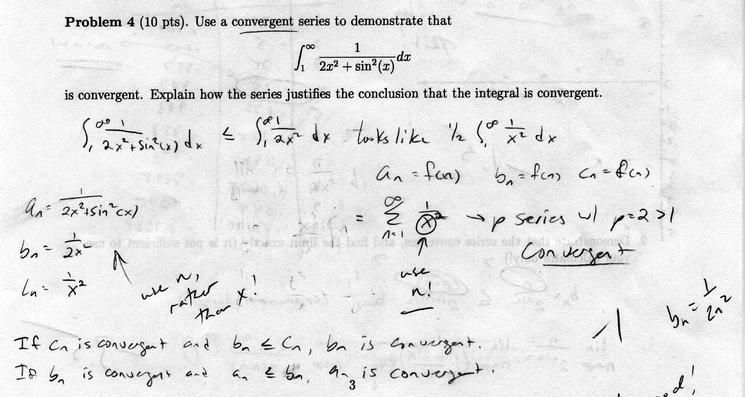 Problem 4 (10 pts). Use a convergent series to demonstrate that
∫₁^∞ 1/(2x² + sin²(x)) dx
is convergent. Explain how the series justifies the conclusion that the integral is convergent.
∫₁^∞ 1/(2x²+sin²(x)) dx ≤ ∫₁^∞ 1/(2x²) dx looks like 1/2 ∫₁^∞ 1/x² dx
aₙ = f(n) bₙ = f(n) cₙ = f(n)
aₙ = 1/(2x²+sin²(x))
= ∑_{n=1}^∞ 1/x² → p series w/ p=2>1
bₙ = 1/(2x²)
Convergent
cₙ = 1/x²
use n, rather than x!
use n!
-1
bₙ = 1/(2n²)
If cₙ is convergent and bₙ ≤ cₙ, bₙ is convergent.
If bₙ is convergent and aₙ ≤ bₙ, aₙ is convergent.
3